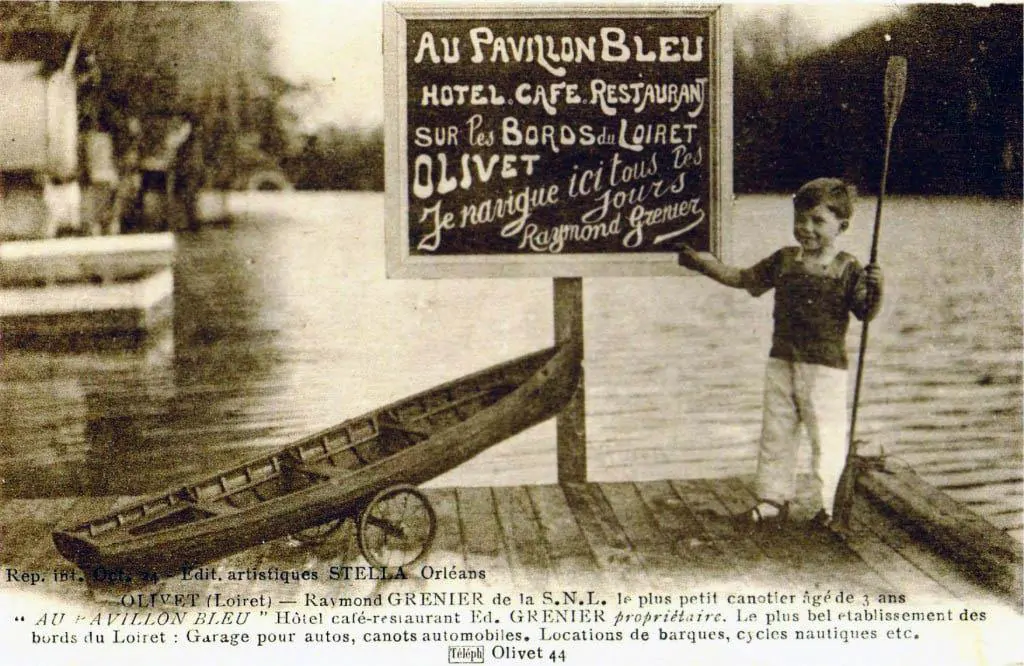 AU PAVILLON BLEU
HOTEL. CAFE. RESTAURANT
SUR les BORDS du LOIRET
OLIVET
Je navigue ici tous les
jours
Raymond Grenier
Rep. int. Oct. 24 - Edit. artistiques STELLA Orléans
OLIVET (Loiret) — Raymond GRENIER de la S.N.L. le plus petit canotier âgé de 3 ans
" AU PAVILLON BLEU " Hôtel café-restaurant Ed. GRENIER propriétaire. Le plus bel etablissement des
bords du Loiret : Garage pour autos, canots automobiles. Locations de barques, cycles nautiques etc.
Téléph Olivet 44